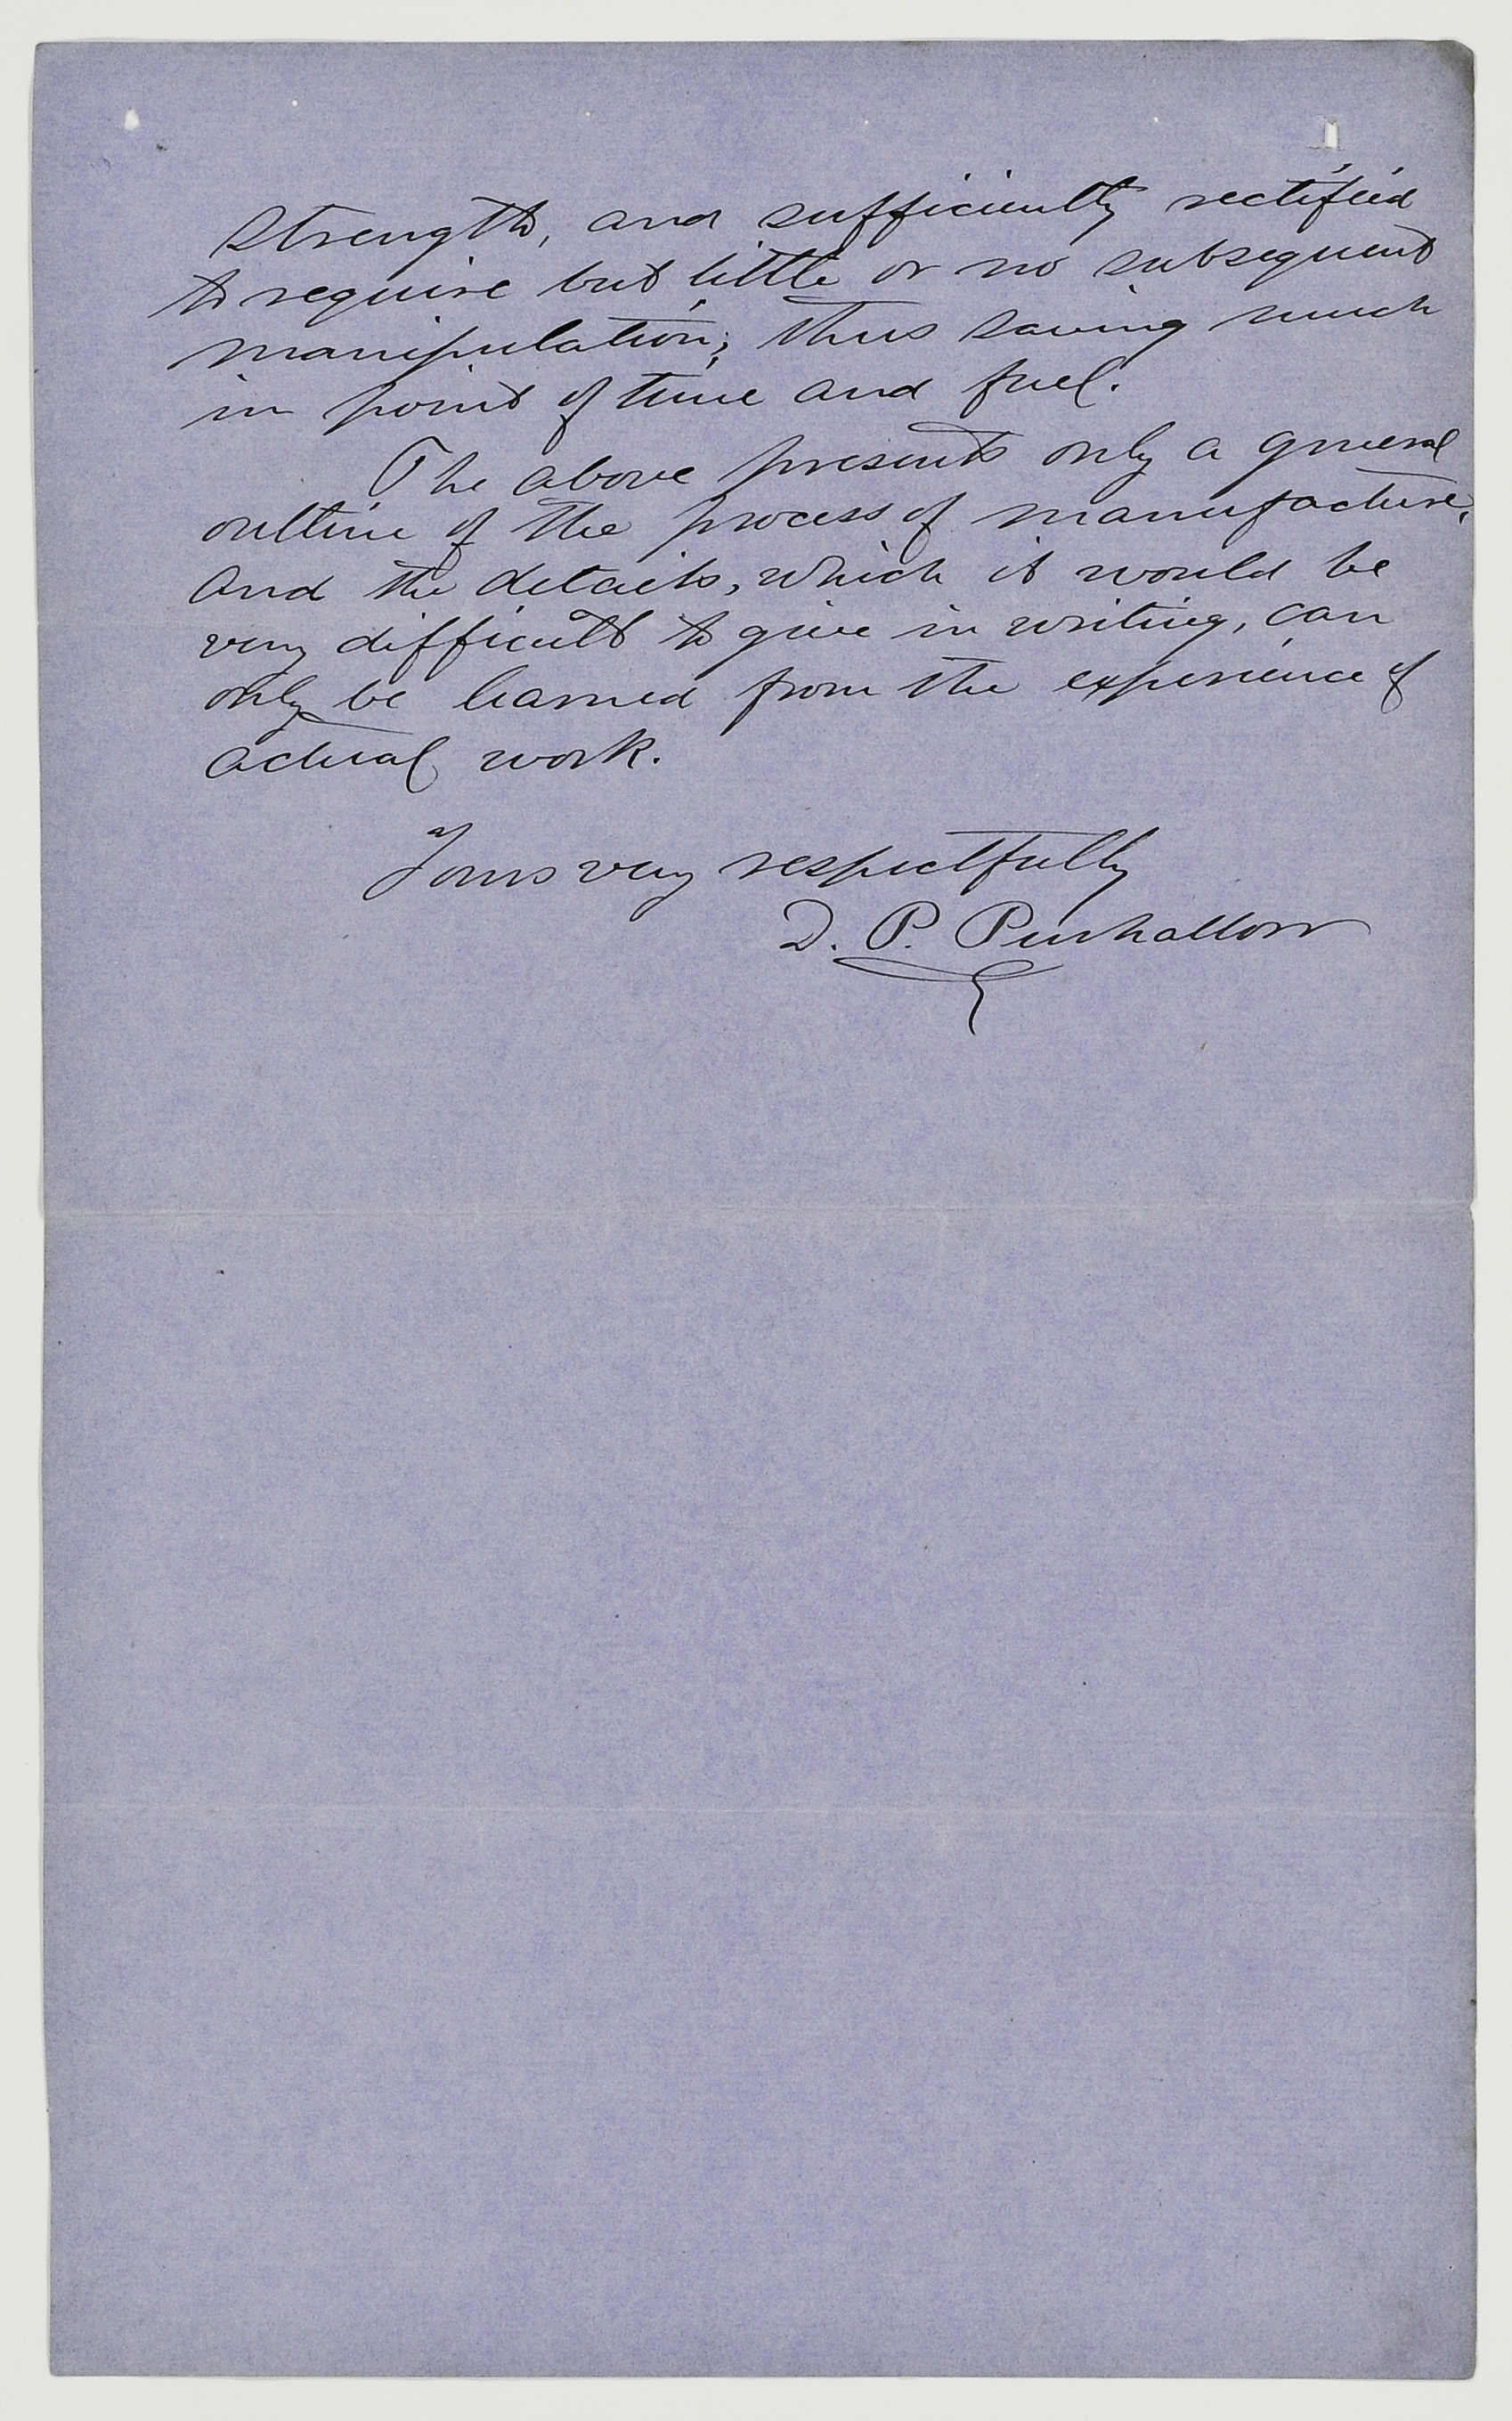 strength, and sufficiently rectified
to require but little or no subsequent
manipulation; thus saving much
in point of time and fuel.
The above presents only a general
outline of the process of manufacture,
and the details, which it would be
very difficult to give in writing, can
only be learned from the experience of
actual work.
Yours very respectfully
D. P. Penhallow